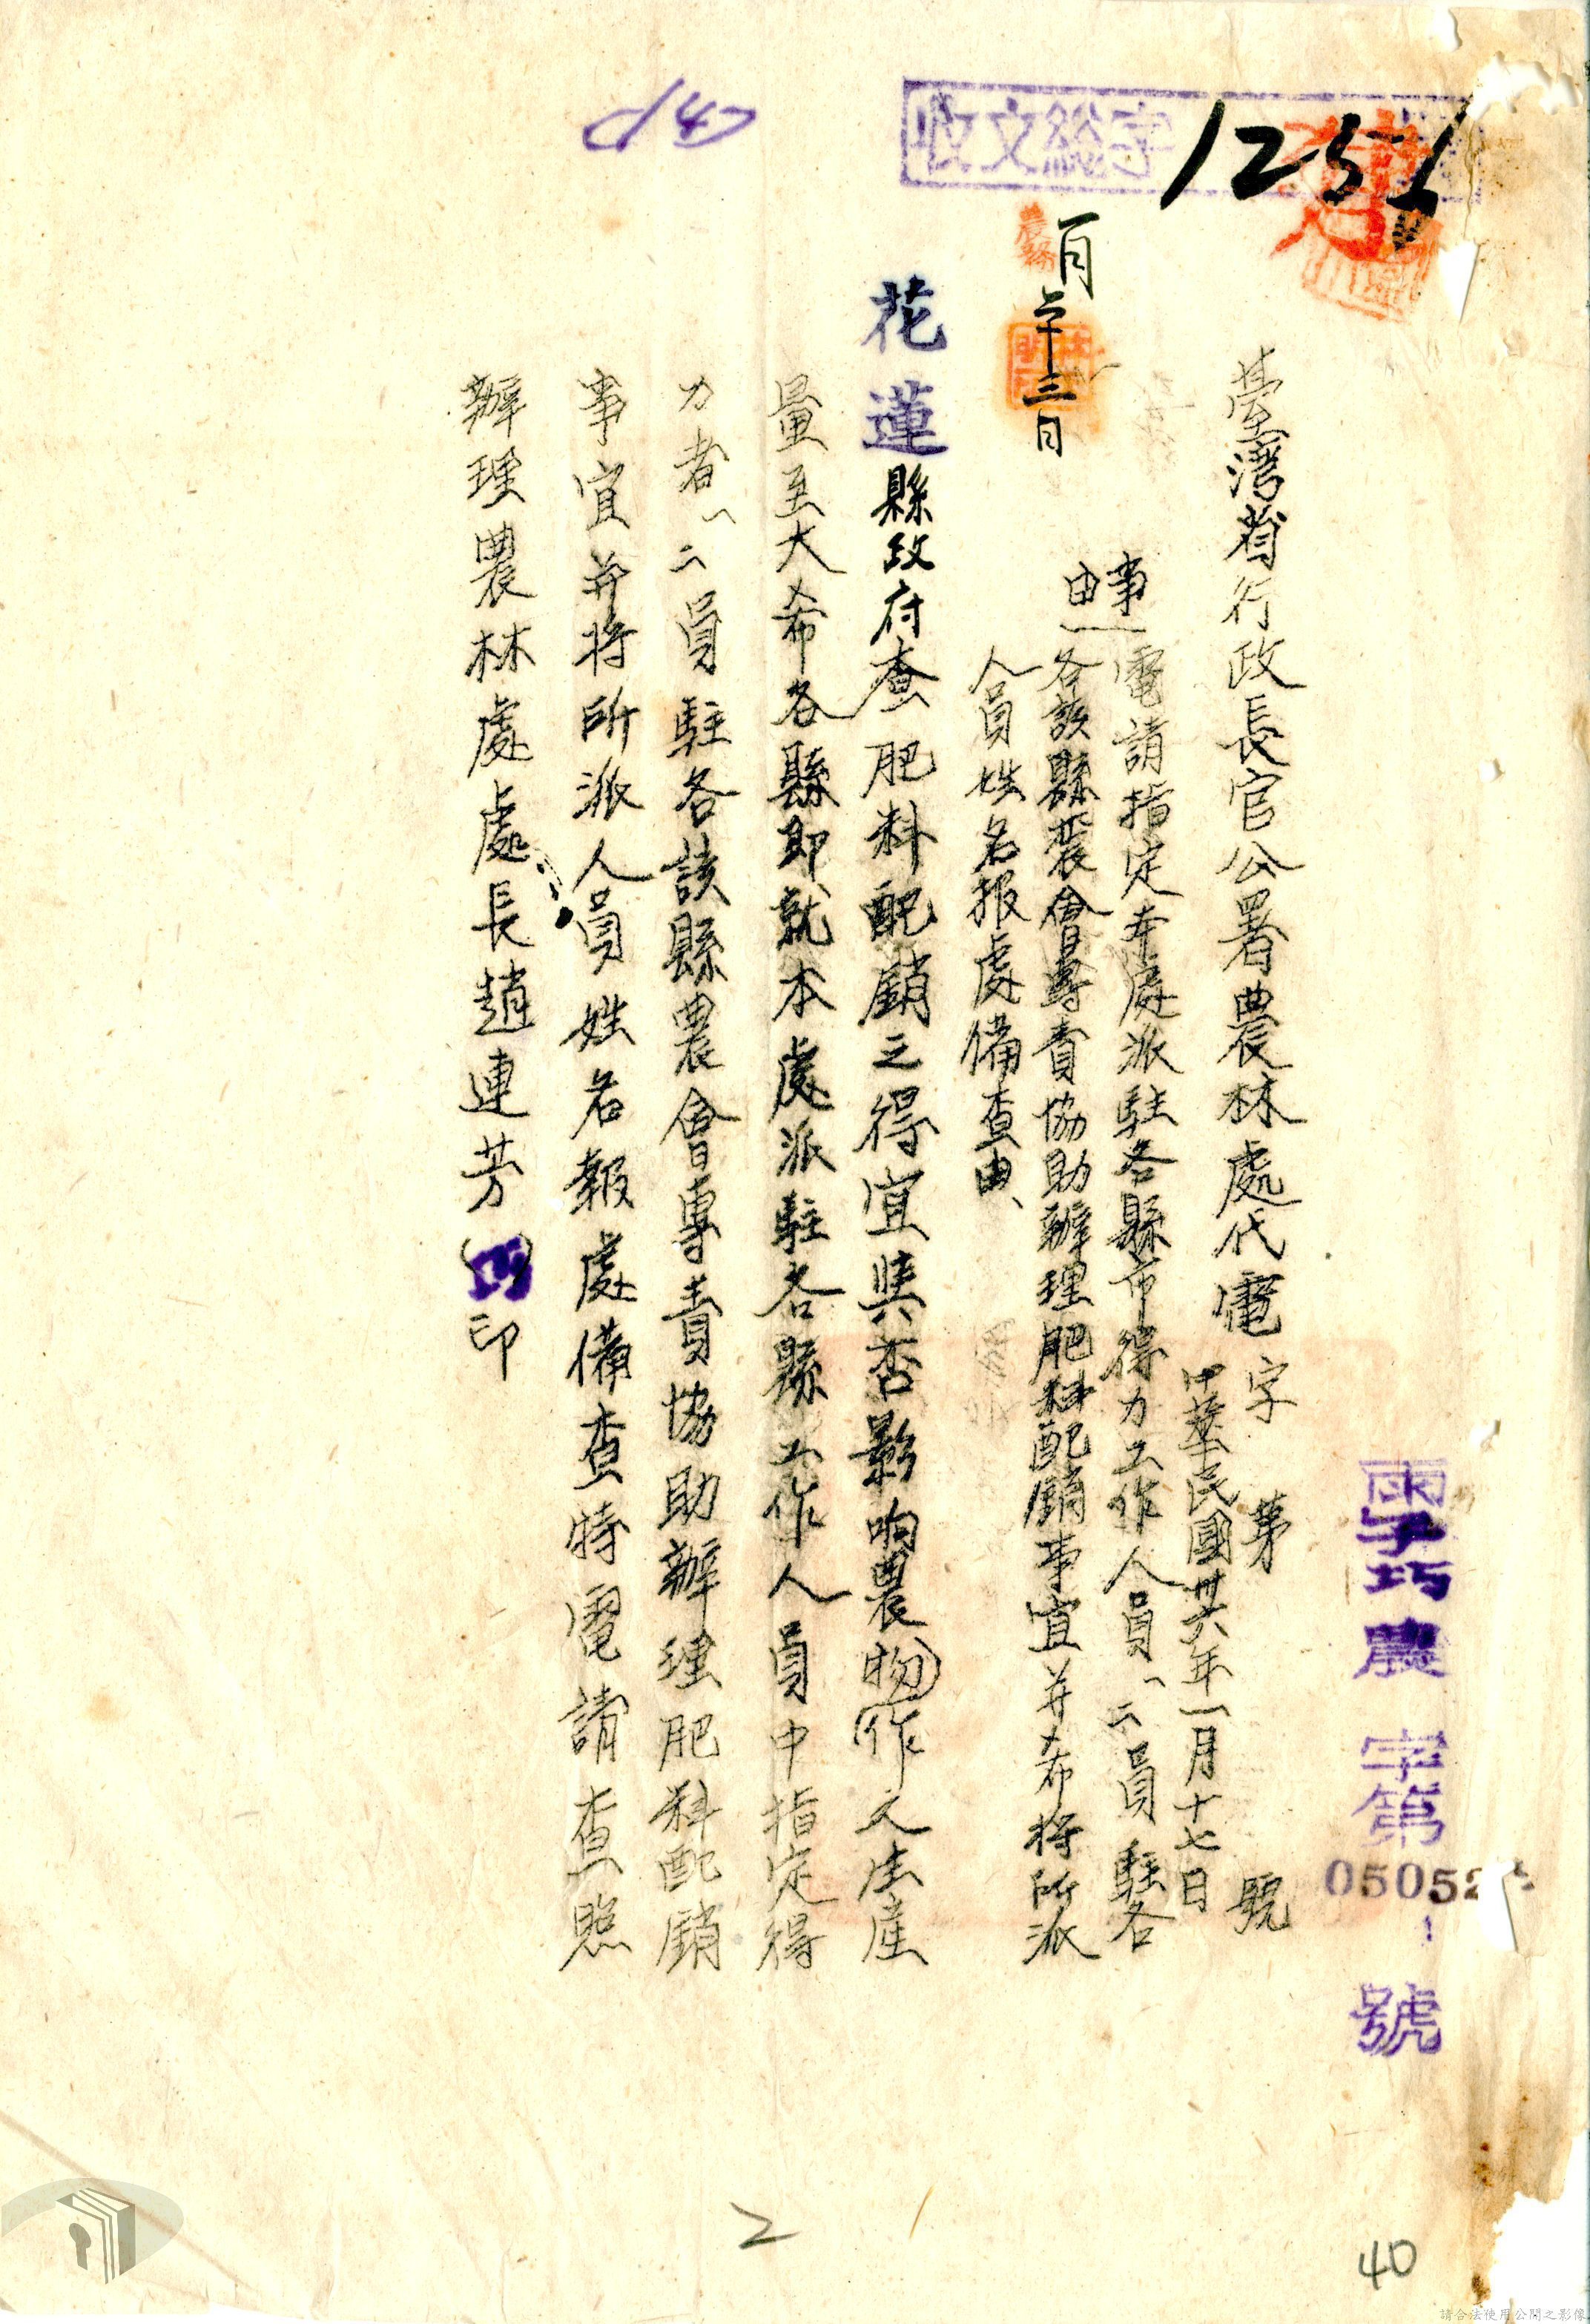 收文總字
1251
臺灣省行政長官公署農林處代電 字 第 號
農 字第 0505 號
中華民國卅六年一月十七日
事由
電請指定本處派駐各縣市得力工作人員一、二員駐各
各該縣農會專責協助辦理肥料配銷事宜并希將所派
人員姓名报處備查由、
一月二十三日
花蓮縣政府查肥料配銷之得宜與否影响農(物)(作)之生產
量至大希各縣即就本處派駐各縣工作人員中指定得
力者一、二員駐各該縣農會專責協助辦理肥料配銷
事宜并將所派人員姓名報處備查特電請查照
辦理農林處處長趙連芳()印
2
40
請合法使用公開之影像